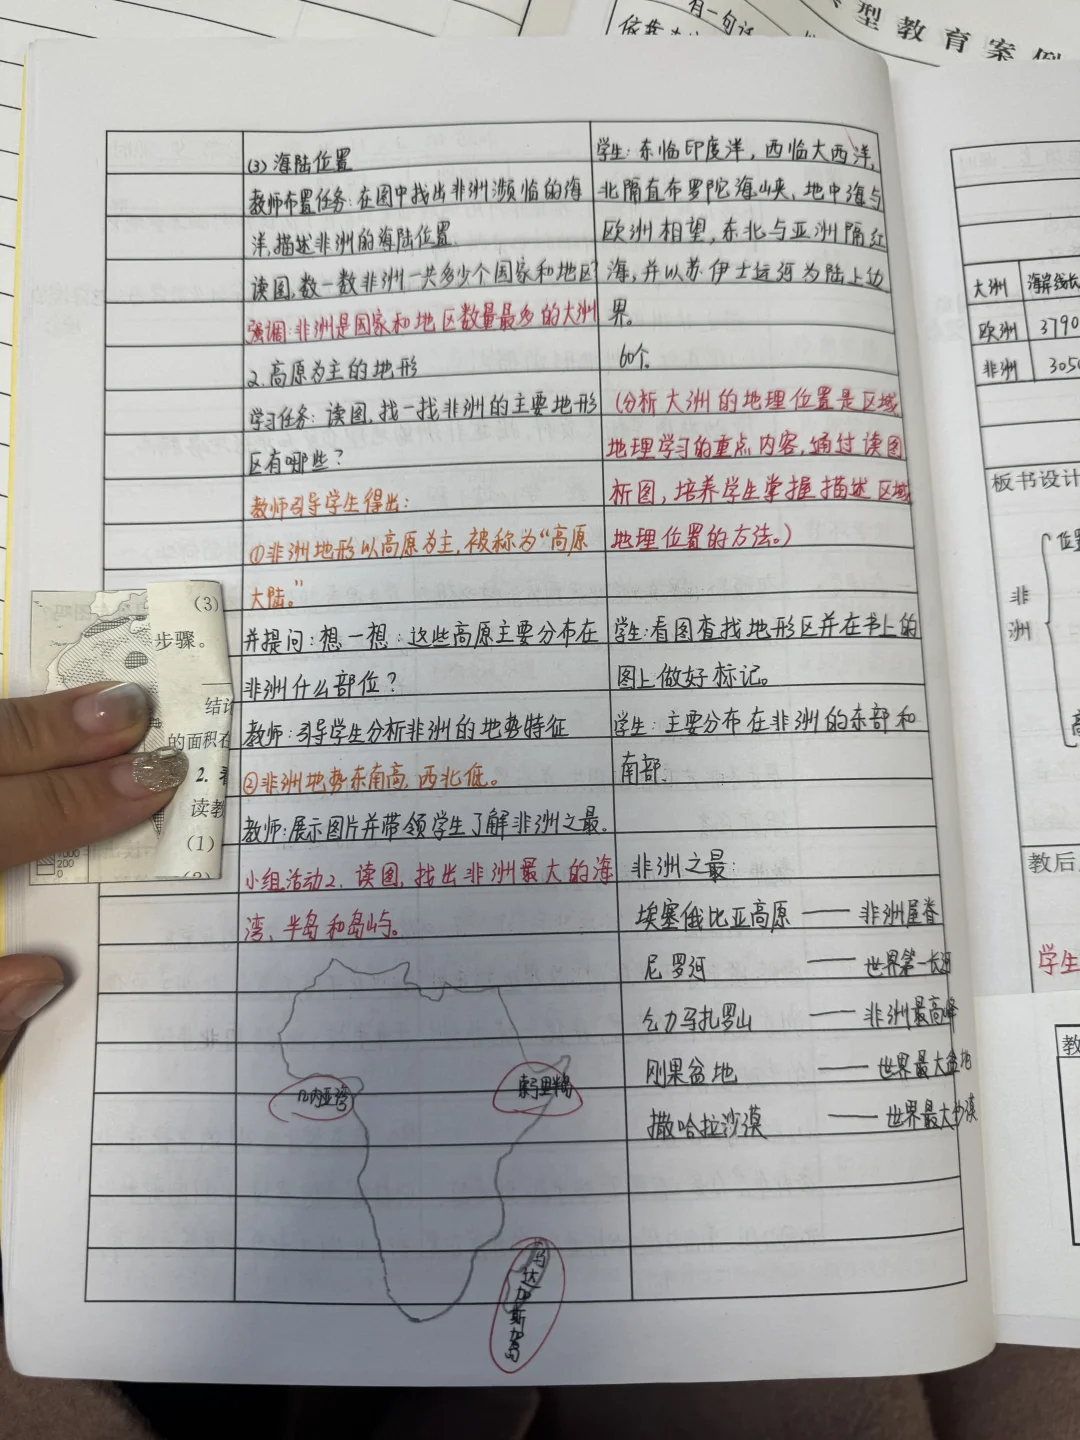 型教育案例
有一句话
(3) 海陆位置
教师布置任务:在图中找出非洲濒临的海
洋,描述非洲的海陆位置.
读图,数一数非洲一共多少个国家和地区?
强调:非洲是国家和地区数量最多的大洲
2.高原为主的地形
学习任务:读图,找一找非洲的主要地形
区有哪些?
教师引导学生得出:
①非洲地形以高原为主,被称为“高原
大陆。”
并提问:想一想:这些高原主要分布在
非洲什么部位?
教师:引导学生分析非洲的地势特征
②非洲地势东南高,西北低。
教师:展示图片并带领学生了解非洲之最.
小组活动2.读图,找出非洲最大的海
湾、半岛和岛屿。
几内亚湾
索马里半岛
马达加斯加岛
学生:东临印度洋,西临大西洋,
北隔直布罗陀海峡、地中海与
欧洲相望,东北与亚洲隔红
海,并以苏伊士运河为陆上边
界。
60个.
(分析大洲的地理位置是区域
地理学习的重点内容,通过读图
析图,培养学生掌握描述区域
地理位置的方法。)
学生:看图查找地形区并在书上的
图上做好标记。
学生:主要分布在非洲的东部和
南部.
非洲之最:
埃塞俄比亚高原 —— 非洲屋脊
尼罗河 —— 世界第一长河
乞力马扎罗山 —— 非洲最高峰
刚果盆地 —— 世界最大盆地
撒哈拉沙漠 —— 世界最大沙漠
(3)
步骤。
结论
的面积在
2.
读教
(1)
1000
200
0
大洲 海岸线长
欧洲 3790
非洲 305
板书设计
位置
非
洲
教后
学生
教